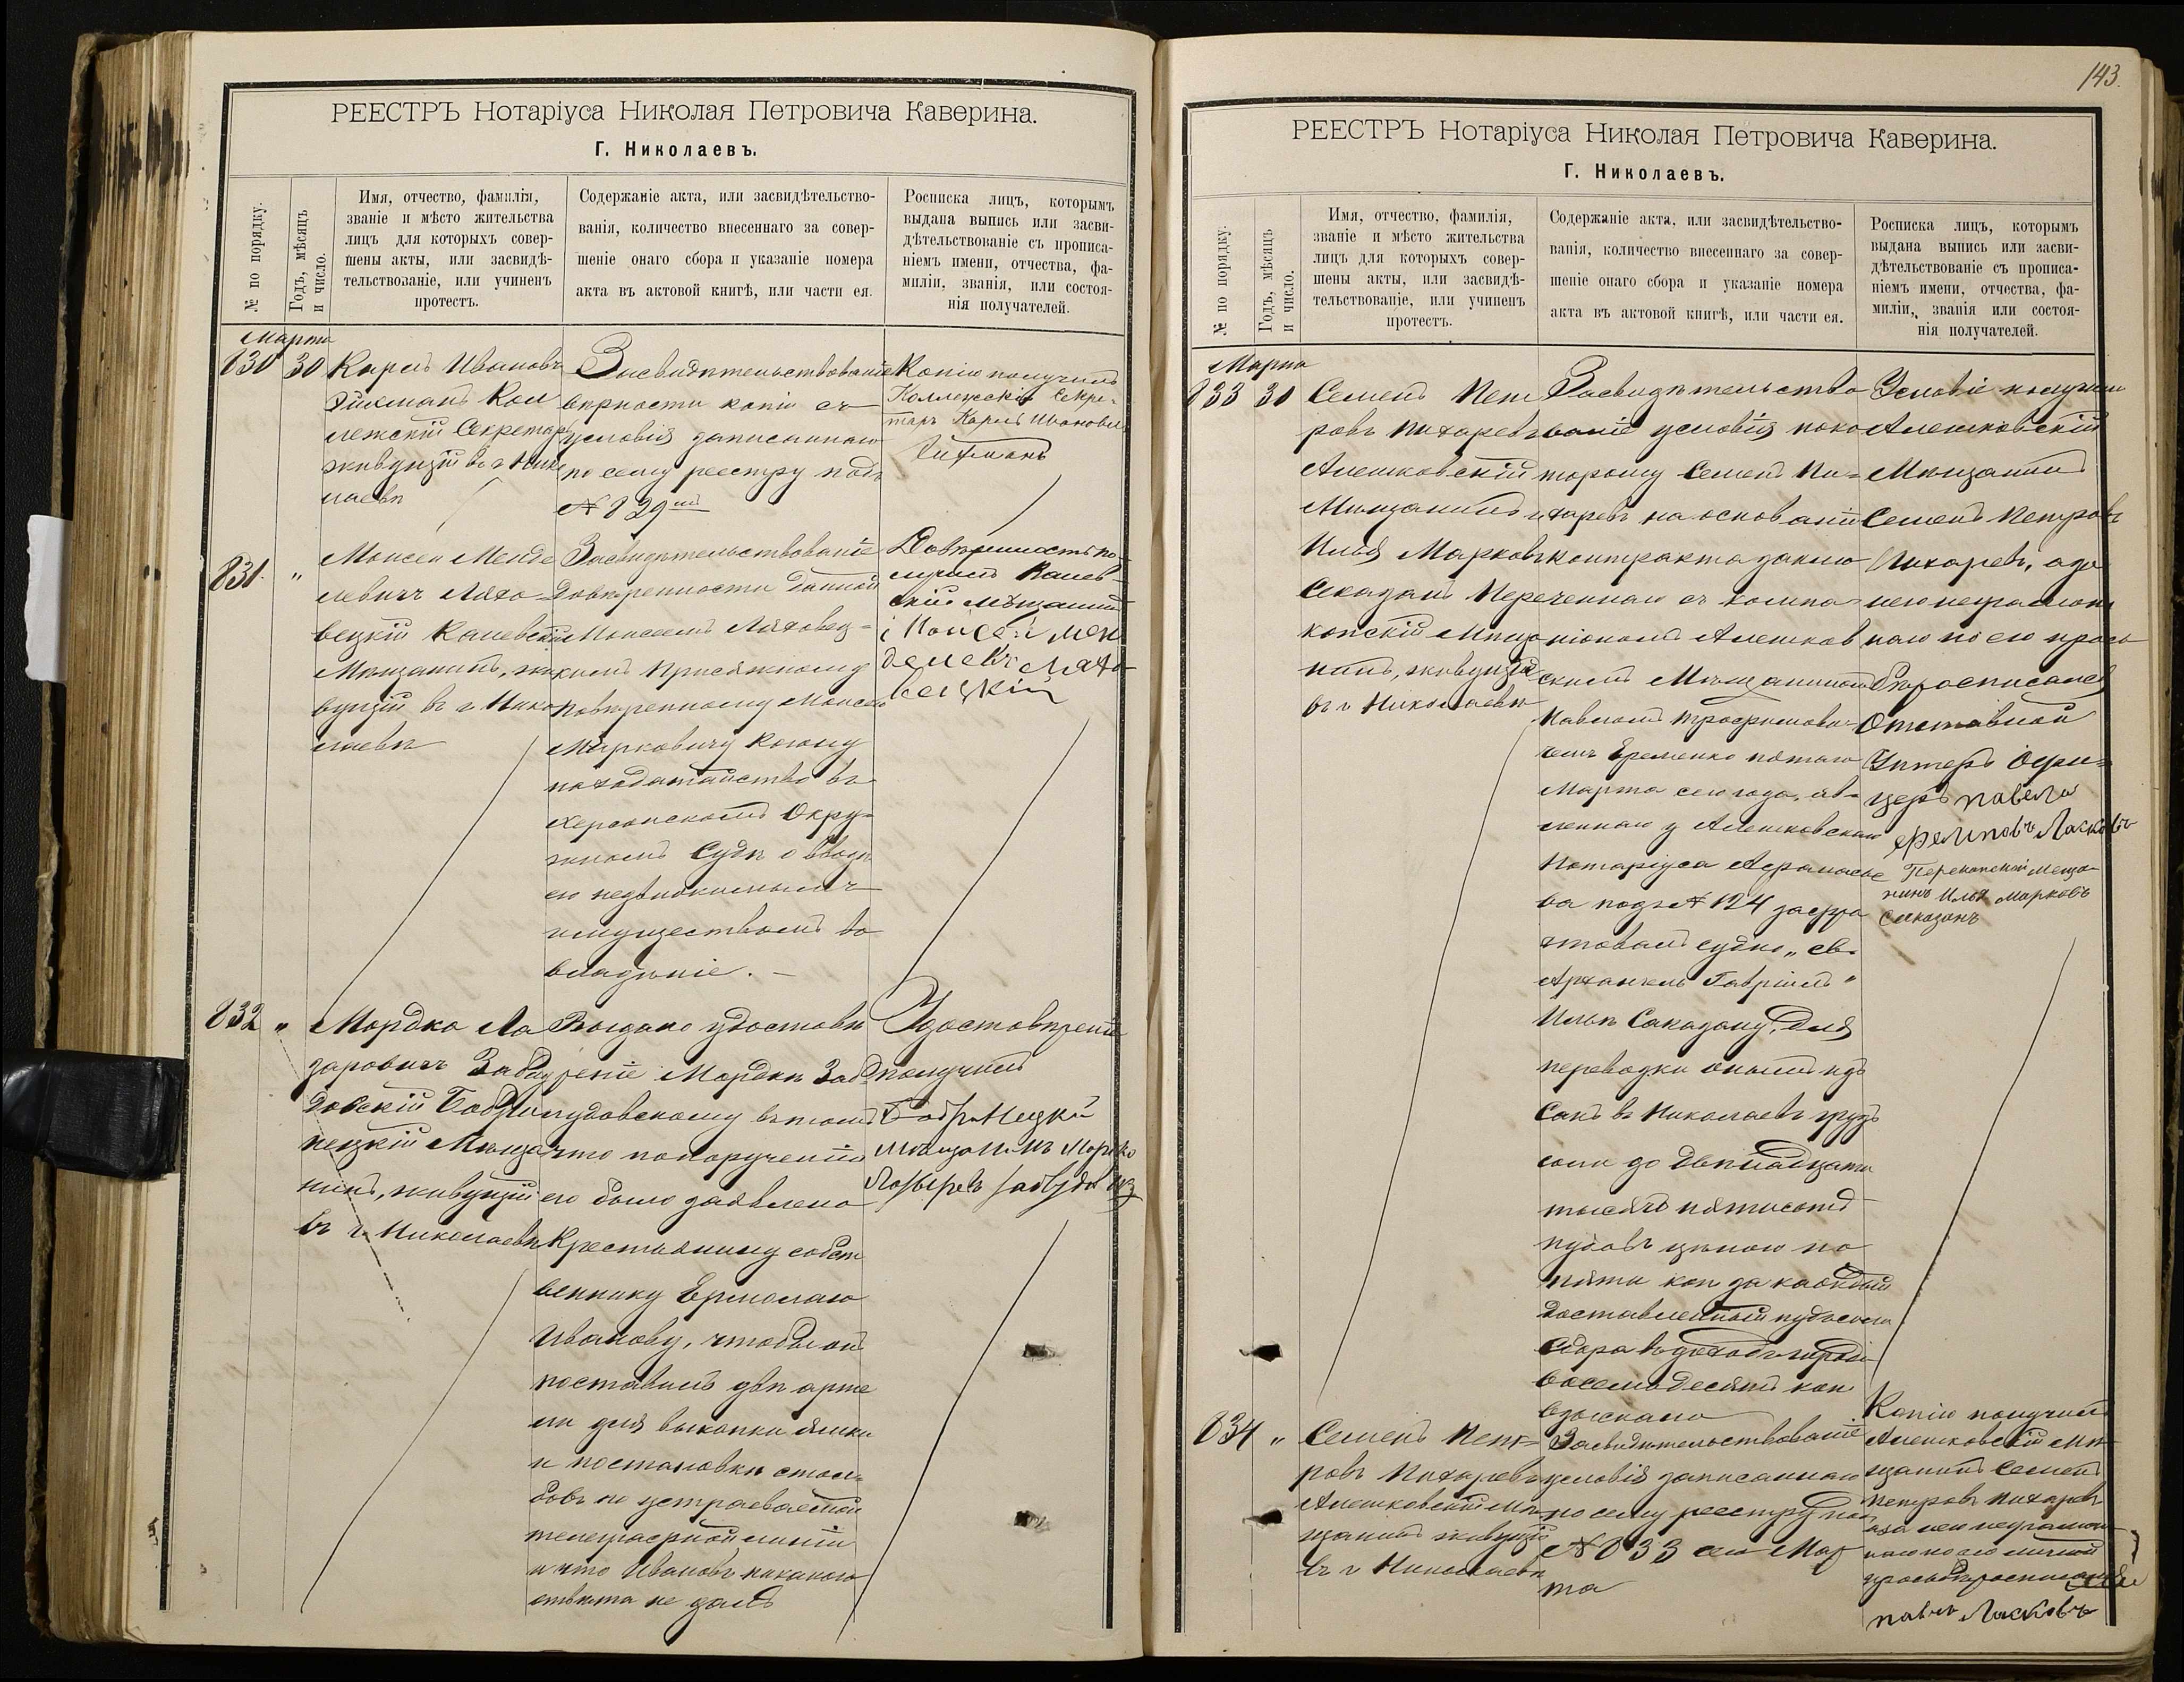 РЕЕСТРЪ Нотаріуса Николая Петровича Каверина.
Г. Николаевъ.
№ по порядку.
Годъ, мѣсяцъ
и число.
Имя, отчество, фамилія,
званіе и мѣсто жительства
лицъ для которыхъ совер-
шены акты, или засвидѣ-
тельствованіе, или учиненъ
протестъ.
Содержаніе акта, или засвидѣтельство-
ванія, количество внесеннаго за совер-
шеніе онаго сбора и указаніе номера
акта въ актовой книгѣ, или части ея.
Росписка лицъ, которымъ
выдана выпись или засви-
дѣтельствованіе съ прописа-
ніемъ имени, отчества, фа-
миліи, званія, или состоя-
нія получателей.
Марта
830 30
Карлъ Ивановъ
Кол
лежскій Секретарь
живущій въ г Нико
лаевѣ
Засвидѣтельствованіе
вѣрности копіи съ
условія записаннаго
по сему реестру подъ
№ 829мъ
Копію получилъ
Коллежскій Секре-
тарь Карлъ Ивановъ
831. "
Моисей Менде
левичъ Ляхо-
вецкій Каневскій
Мѣщанинъ, жи
вущій въ г Нико
лаевѣ
Засвидѣтельствованіе
довѣренности данной
Моисеемъ Ляховец-
кимъ Присяжному
Повѣренному Моисею
Марковичу Когону
на ходатайство въ
Херсонскомъ Окру-
жномъ Судѣ о вводѣ
его недвижимымъ
имуществомъ во
владѣніе. —
Довѣренность по-
лучилъ Канев-
скій мѣщанинъ
Моисей Мен
делевъ Ляхо
вецкій
832 "
Мордко Ла
заровичъ Забу
довскій Бобри
нецкій Мѣща
нинъ, живущій
въ г. Николаевѣ
Выдано удостовѣ
реніе Мордкѣ Заб
удовскому въ томъ
что по порученію
его было заявлено
Крестьянину собст
веннику Ермолаю
Иванову, чтобы онъ
поставилъ двѣ арте
ли для выкопки ямки
и постановки стол-
бовъ по устраеваемой
телеграфной линіи
и что Ивановъ никакого
отвѣта не далъ
Удостовѣреніе
получилъ
Бобринецкій
мѣщанинъ Мордко
143.
РЕЕСТРЪ Нотаріуса Николая Петровича Каверина.
Г. Николаевъ.
№ по порядку.
Годъ, мѣсяцъ
и число.
Имя, отчество, фамилія,
званіе и мѣсто жительства
лицъ для которыхъ совер-
шены акты, или засвидѣ-
тельствованіе, или учиненъ
протестъ.
Содержаніе акта, или засвидѣтельство-
ванія, количество внесеннаго за совер-
шеніе онаго сбора и указаніе номера
акта въ актовой книгѣ, или части ея.
Росписка лицъ, которымъ
выдана выпись или засви-
дѣтельствованіе съ прописа-
ніемъ имени, отчества, фа-
миліи, званія или состоя-
нія получателей.
Марта
833 30
Семенъ Пет
ровъ Пихаревъ
Алешковскій
Мѣщанинъ и
Илья Марковъ
Саказанъ Пере
копскій Мѣща
нинъ, живущіе
въ г Николаевѣ
Засвидѣтельство
ваніе условія по ко
торому Семенъ Пи-
харевъ на основаніи
контракта заклю
ченнаго съ компа-
ніономъ Алешков
скимъ Мѣщаниномъ
Павломъ Трофимови-
чемъ Еременко пятаго
Марта сего года, яв-
леннаго у Алешковскаго
Нотаріуса Афанасье
ва подъ № 124 зафра
хтовалъ судно „Св.
Архангелъ Гавріилъ"
Ильѣ Саказану, для
перевозки онымъ изъ
Сакъ въ Николаевъ грузъ
соли до двѣнадцати
тысячъ пятисотъ
пудовъ цѣною по
пяти коп за каждый
доставленный пудъ соли
Сбора въ доходъ города
восемьдесятъ коп
взыскано
Условіе получилъ
Алешковскій
Мѣщанинъ
Семенъ Петровъ
Пихаревъ, а за
него неграмот
наго по его прось
бѣ росписался
Отставной
Унтеръ Офи-
церъ Павелъ
Филиповъ Ласковъ
Перекопскій меща-
нинъ Илья Марковъ
Саказанъ
834 "
Семенъ Пет-
ровъ Пихаревъ
Алешковскій Мѣ-
щанинъ живущій
въ г Николаевѣ
Засвидѣтельствованіе
условія записаннаго
по сему реестру подъ
№ 833 сего Мар
та
Копію получилъ
Алешковскій Мѣ-
щанинъ Семенъ
Петровъ Пихаревъ
а за него неграмот
наго по его личной
просьбѣ росписался
Павелъ Ласковъ